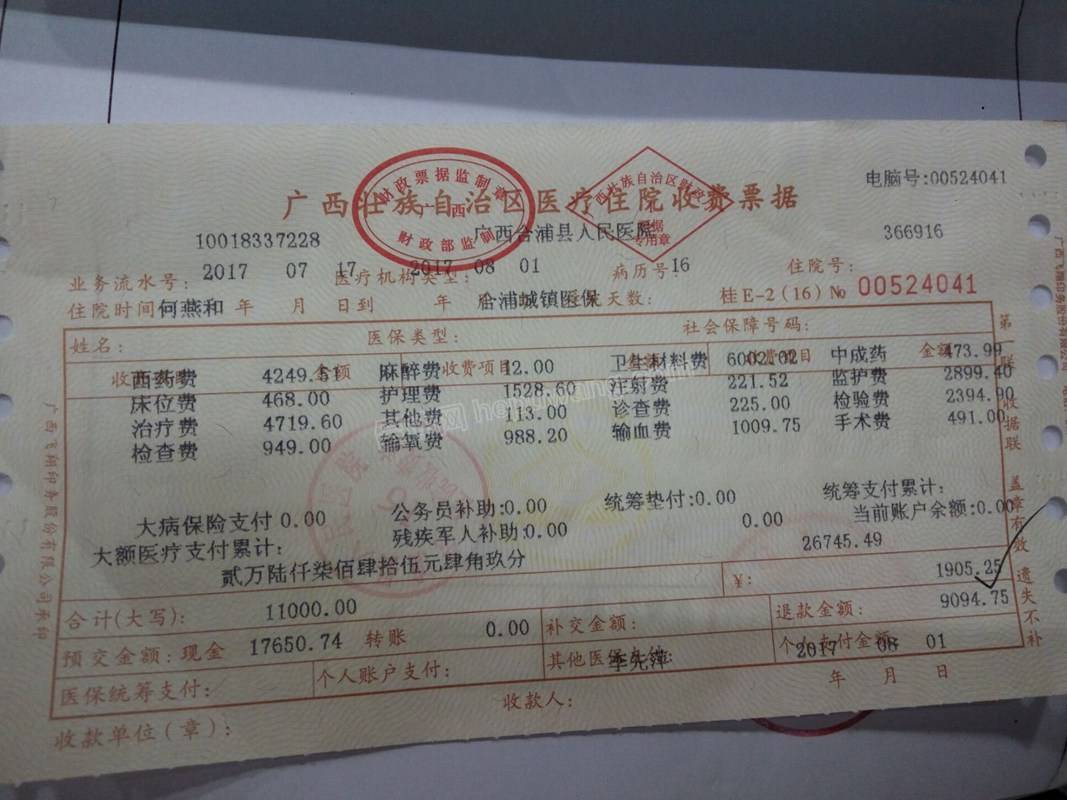 电脑号:00524041
财政票据监制章
广西
财政部监制
广西壮族自治区财政厅
票据
专用章
广西壮族自治区医疗住院收费票据
10018337228 广西合浦县人民医院 366916
业务流水号: 2017 07 17 医疗机构类型: 2017 08 01 病历号: 16 住院号:
住院时间 何燕和 年 月 日到 年 合浦城镇医保 天数: 桂E-2(16)№ 00524041
姓名: 医保类型: 社会保障号码:
收费项目 金额 收费项目 金额 收费项目 金额
西药费 4249.51 麻醉费 12.00 卫生材料费 6002.02 中成药 473.99
床位费 468.00 护理费 1528.60 注射费 221.52 监护费 2899.40
治疗费 4719.60 其他费 113.00 诊查费 225.00 检验费 2394.90
检查费 949.00 输氧费 988.20 输血费 1009.75 手术费 491.00
大病保险支付 0.00 公务员补助:0.00 统筹垫付:0.00 统筹支付累计:
大额医疗支付累计: 残疾军人补助:0.00 0.00 当前账户余额:0.00
贰万陆仟柒佰肆拾伍元肆角玖分 26745.49
合计(大写): 11000.00 ¥: 1905.25
预交金额:现金 17650.74 转账 0.00 补交金额: 退款金额: 9094.75
医保统筹支付: 个人账户支付: 其他医保支付: 李先萍 个人支付金额: 2017 08 01
收款单位(章): 收款人: 年 月 日
第一联 收据联 盖章有效 遗失不补
广西飞翔印务股份有限公司承印